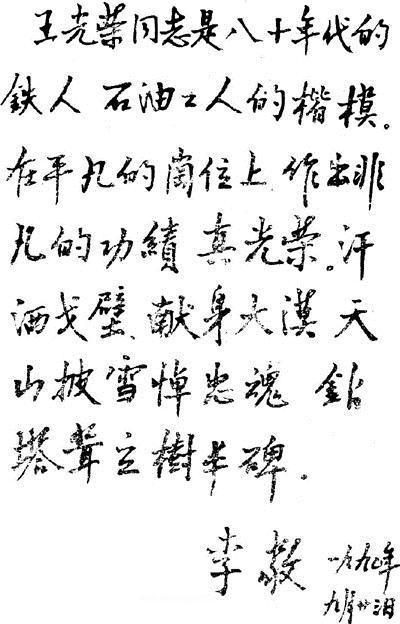 王光荣同志是八十年代的
鉄人 石油工人的楷模。
在平凡的崗位上 作出非
凡的功績 真光荣。汗
洒戈壁、献身大漠 天
山披雪悼忠魂 鉆
塔聳立樹丰碑.
李敬 一九九〇年
九月廿